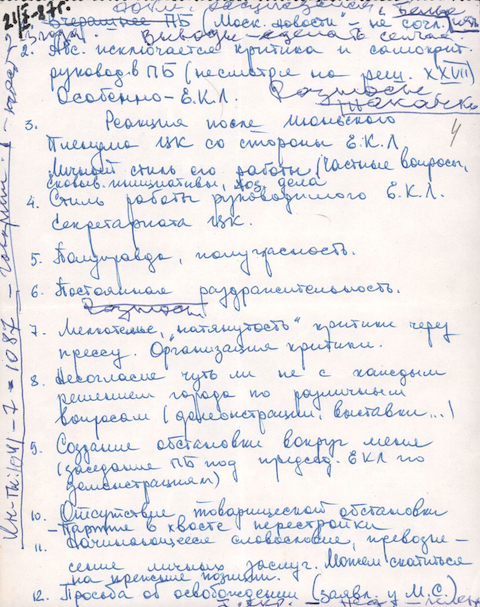 21/X-87г.
вчерашнее ПБ (Моск. новости" - не согл.
Выводы - сделать сейчас
2. Абс. исключается критика и самокрит.
руковод. в ПБ (несмотря на реш. XXVII)
Особенно - Е.К.Л.
3. Реакция после июньского
4
Пленума ЦК со стороны Е.К.Л
Личный стиль его работы (частные вопросы,
сковыв. инициативы, хоз. дела
4. Стиль работы руководимого Е.К.Л.
Секретариата ЦК.
5. Полуправда, полугласность.
6. Постоянная раздражительность.
7. Мелкотемье, "натянутость" критики через
прессу. Организация критики.
8. Несогласие чуть ли не с каждым
решением города по различным
вопросам (демонстрации, выставки...)
9. Создание обстановки вокруг меня
(заседание ПБ под председ. ЕКЛ по
демонстрациям)
10. Отсутствие товарищеской обстановки
- Партия в хвосте перестройки
11. Начинающееся славословие, превозне-
сение личных заслуг. Можем скатиться
на прежние позиции.
12. Просьба об освобождении (заявл. у М.С.)